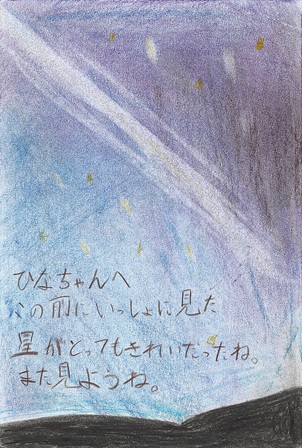 ひなちゃんへ
この前にいっしょに見た
星がとってもきれいだったね。
また見ようね。